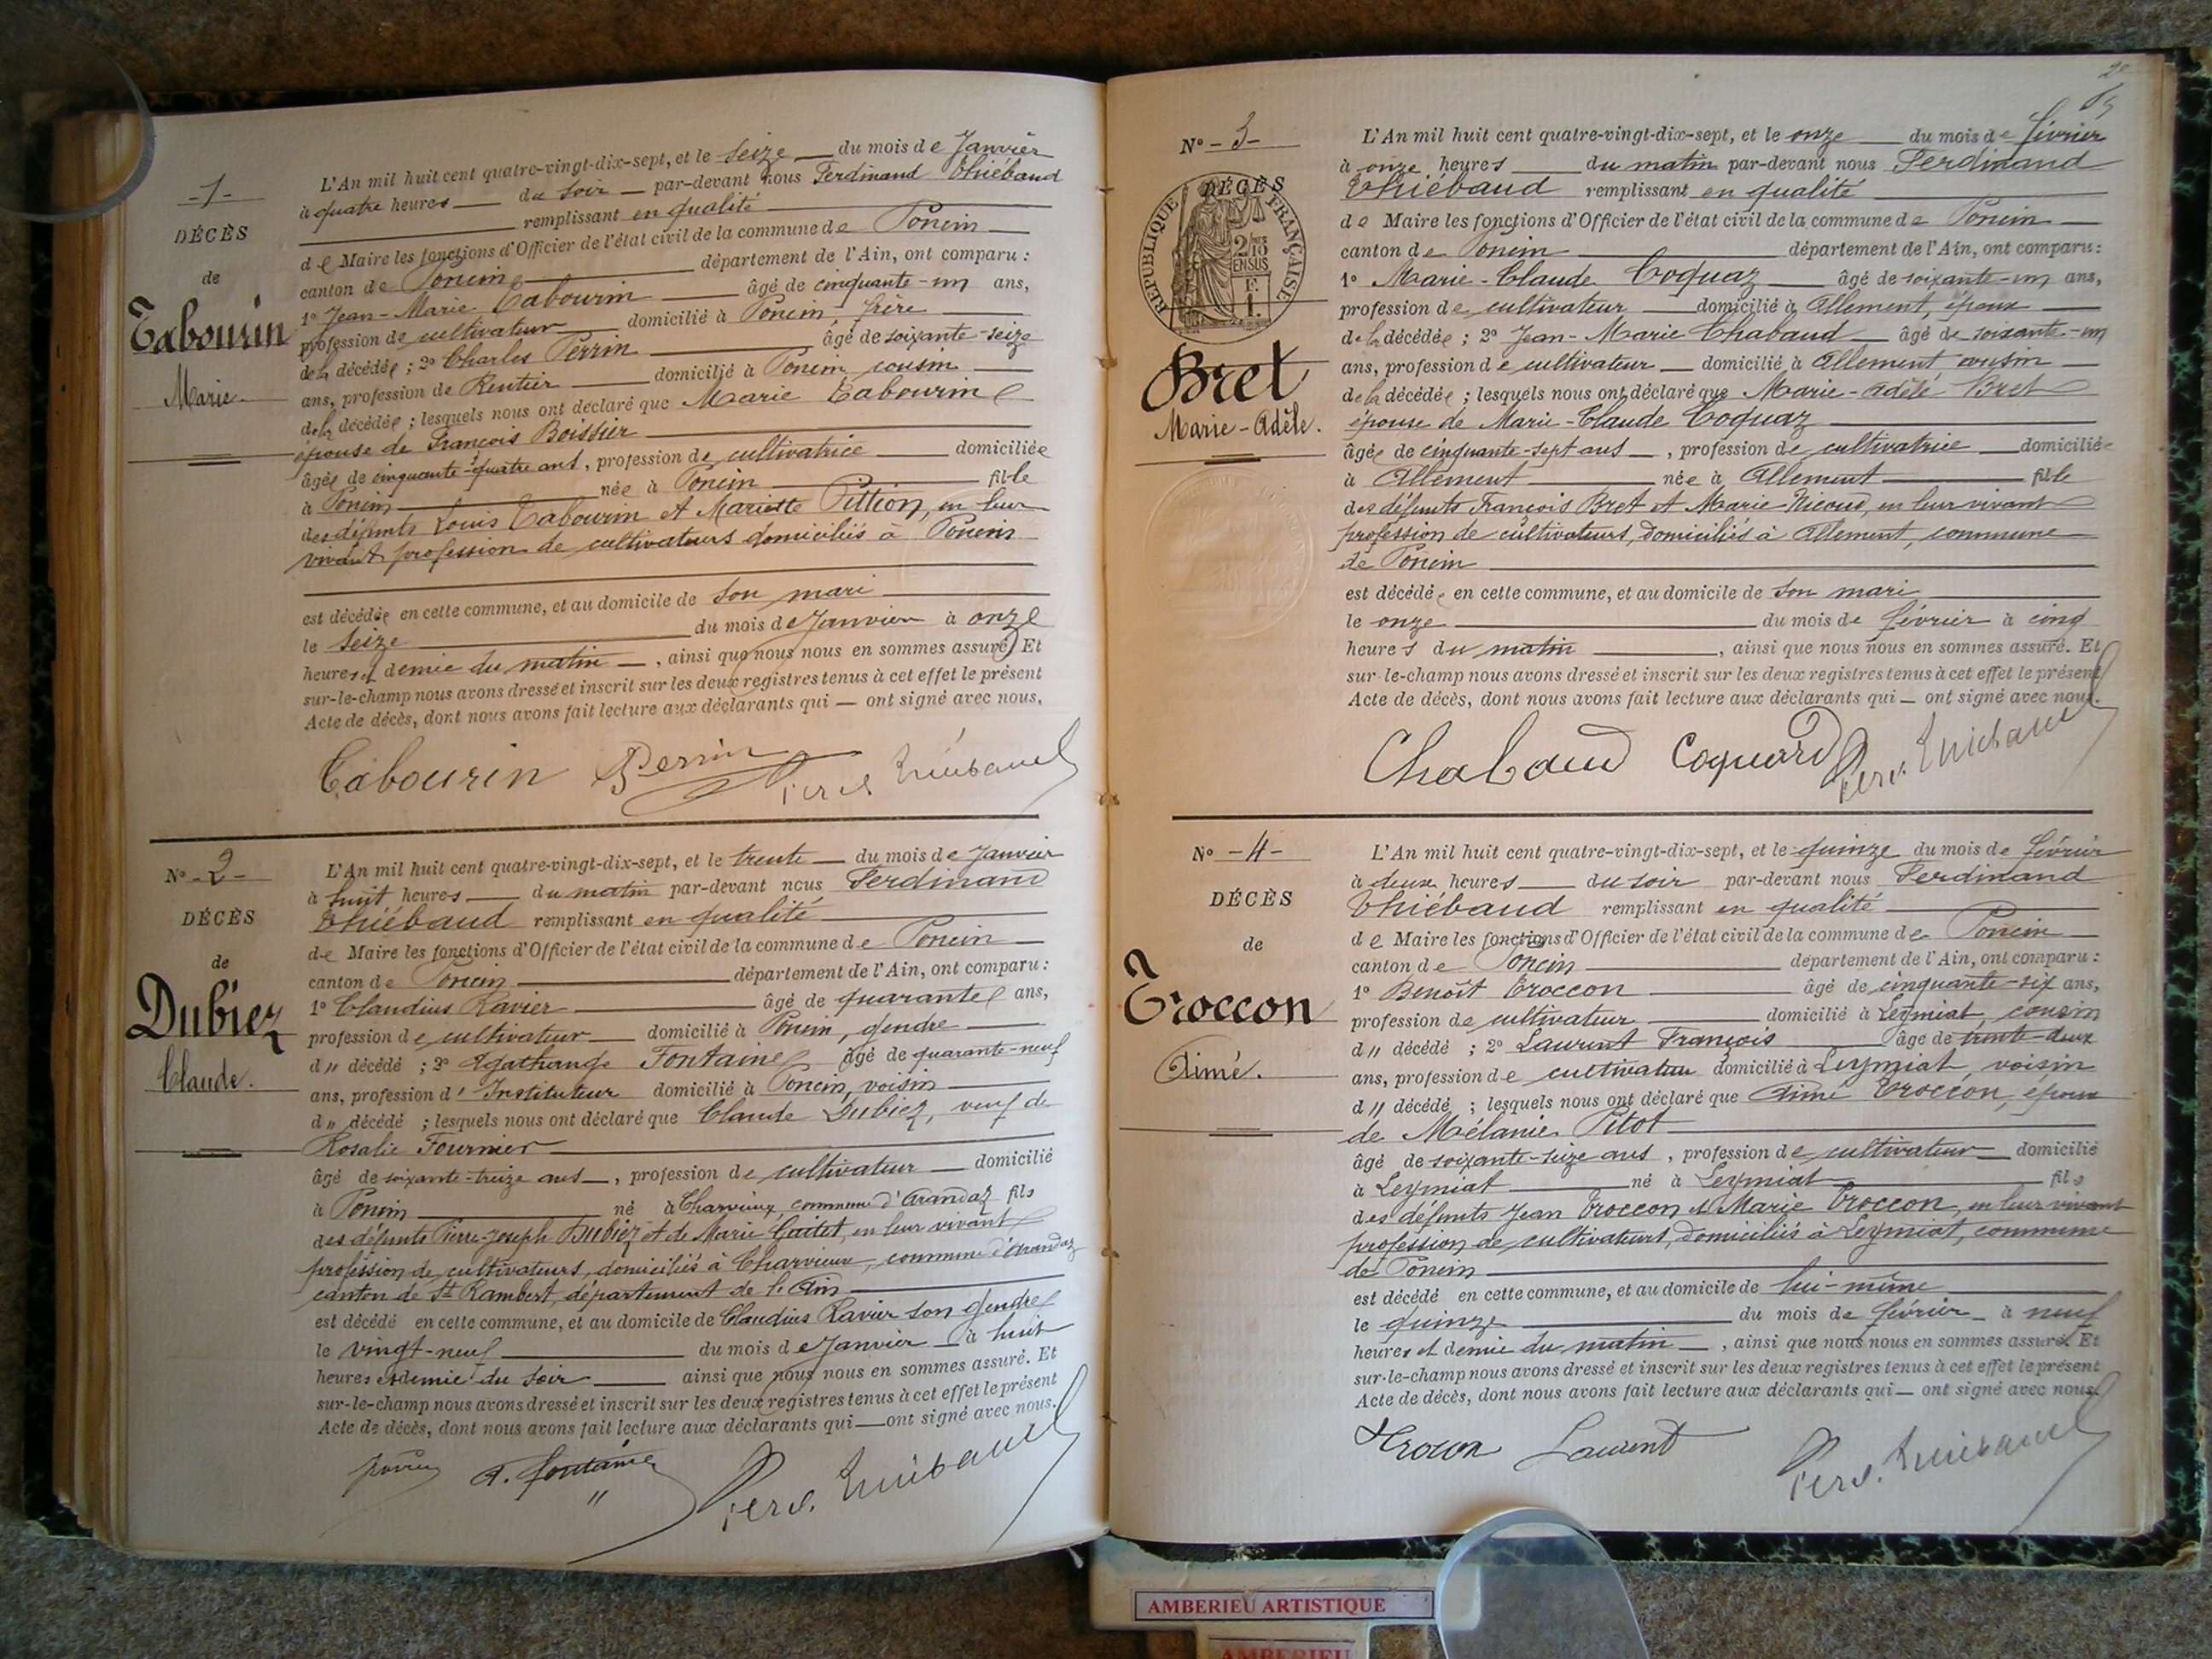 -1-
DÉCÈS
de
Tabourin
Marie.
L'An mil huit cent quatre-vingt-dix-sept, et le seize du mois de Janvier
à quatre heures du soir par-devant nous Ferdinand Thiébaud
remplissant en qualité
de Maire les fonctions d'Officier de l'état civil de la commune de Poncin
canton de Poncin département de l'Ain, ont comparu :
1º Jean-Marie Tabourin âgé de cinquante-un ans,
profession de cultivateur domicilié à Poncin, frère
de la décédée ; 2º Charles Perrin âgé de soixante-seize
ans, profession de Rentier domicilié à Poncin, cousin
de la décédée ; lesquels nous ont déclaré que Marie Tabourin
épouse de François Boissier
âgée de cinquante-quatre ans, profession de cultivatrice domiciliée
à Poncin née à Poncin fille
des défunts Louis Tabourin et Mariette Pittion, en leur
vivant profession de cultivateurs domiciliés à Poncin
est décédée en cette commune, et au domicile de son mari
le seize du mois de Janvier à onze
heures et demie du matin, ainsi que nous nous en sommes assuré. Et
sur-le-champ nous avons dressé et inscrit sur les deux registres tenus à cet effet le présent
Acte de décès, dont nous avons fait lecture aux déclarants qui — ont signé avec nous.
Tabourin Perrin Ferd. Thiébaud
Nº -2-
DÉCÈS
de
Dubiez
Claude.
L'An mil huit cent quatre-vingt-dix-sept, et le trente du mois de Janvier
à huit heures du matin par-devant nous Ferdinand
Thiébaud remplissant en qualité
de Maire les fonctions d'Officier de l'état civil de la commune de Poncin
canton de Poncin département de l'Ain, ont comparu :
1º Claudius Ravier âgé de quarante ans,
profession de cultivateur domicilié à Poncin, gendre
du décédé ; 2º Agathange Fontaine âgé de quarante-neuf
ans, profession d'Instituteur domicilié à Poncin, voisin
du décédé ; lesquels nous ont déclaré que Claude Dubiez, veuf de
Rosalie Fournier
âgé de soixante-treize ans, profession de cultivateur domicilié
à Poncin né à Charvieux, commune d'Arandaz fils
des défunts Pierre-Joseph Dubiez et de Marie en leur vivant
profession de cultivateurs, domiciliés à Charvieux, commune d'Arandaz
canton de St Rambert, département de l'Ain
est décédé en cette commune, et au domicile de Claudius Ravier son gendre
le vingt-neuf du mois de Janvier à huit
heures et demie du soir ainsi que nous nous en sommes assuré. Et
sur-le-champ nous avons dressé et inscrit sur les deux registres tenus à cet effet le présent
Acte de décès, dont nous avons fait lecture aux déclarants qui — ont signé avec nous.
A. Fontaine Ferd. Thiébaud
Nº -3-
DÉCÈS
RÉPUBLIQUE FRANÇAISE
2/10 EN SUS
Bret
Marie-Adèle.
L'An mil huit cent quatre-vingt-dix-sept, et le onze du mois de février
à onze heures du matin par-devant nous Ferdinand
Thiébaud remplissant en qualité
de Maire les fonctions d'Officier de l'état civil de la commune de Poncin
canton de Poncin département de l'Ain, ont comparu :
1º Marie-Claude Coquaz âgé de soixante-un ans,
profession de cultivateur domicilié à Allement, époux
de la décédée ; 2º Jean-Marie Chabaud âgé de soixante-un
ans, profession de cultivateur domicilié à Allement, cousin
de la décédée ; lesquels nous ont déclaré que Marie-Adèle Bret
épouse de Marie-Claude Coquaz
âgée de cinquante-sept ans, profession de cultivatrice domiciliée
à Allement née à Allement fille
des défunts François Bret et Marie Nicoud, en leur vivant
profession de cultivateurs, domiciliés à Allement, commune
de Poncin
est décédée en cette commune, et au domicile de son mari
le onze du mois de février à cinq
heures du matin, ainsi que nous nous en sommes assuré. Et
sur-le-champ nous avons dressé et inscrit sur les deux registres tenus à cet effet le présent
Acte de décès, dont nous avons fait lecture aux déclarants qui — ont signé avec nous.
Chabaud Coquard Ferd. Thiébaud
Nº -4-
DÉCÈS
de
Troccon
Aimé.
L'An mil huit cent quatre-vingt-dix-sept, et le quinze du mois de février
à deux heures du soir par-devant nous Ferdinand
Thiébaud remplissant en qualité
de Maire les fonctions d'Officier de l'état civil de la commune de Poncin
canton de Poncin département de l'Ain, ont comparu :
1º Benoît Troccon âgé de cinquante-six ans,
profession de cultivateur domicilié à Leymiat, cousin
du décédé ; 2º Laurent François âgé de trente-deux
ans, profession de cultivateur domicilié à Leymiat, voisin
du décédé ; lesquels nous ont déclaré que Aimé Troccon, époux
de Mélanie Pitot
âgé de soixante-seize ans, profession de cultivateur domicilié
à Leymiat né à Leymiat fils
des défunts Jean Troccon et Marie Troccon, en leur vivant
profession de cultivateurs, domiciliés à Leymiat, commune
de Poncin
est décédé en cette commune, et au domicile de lui-même
le quinze du mois de février à neuf
heures et demie du matin, ainsi que nous nous en sommes assuré. Et
sur-le-champ nous avons dressé et inscrit sur les deux registres tenus à cet effet le présent
Acte de décès, dont nous avons fait lecture aux déclarants qui — ont signé avec nous.
Trocon Laurent Ferd. Thiébaud
AMBERIEU ARTISTIQUE
AMBERIEU